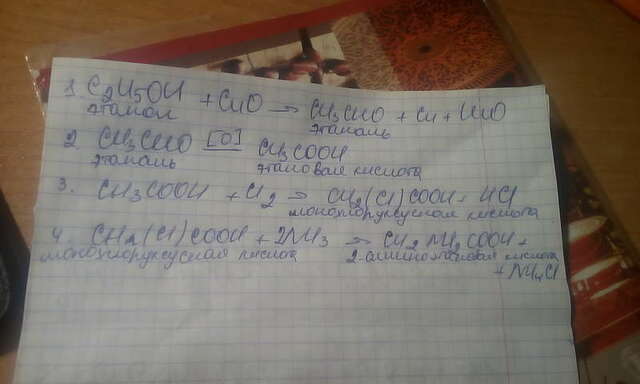 1. C₂H₅OH + CuO → CH₃CHO + Cu + H₂O
этанол этаналь
2. CH₃CHO [O] CH₃COOH
этаналь этановая кислота
3. CH₃COOH + Cl₂ → CH₂(Cl)COOH + HCl
монохлоруксусная кислота
4. CH₂(Cl)COOH + 2NH₃ → CH₂NH₂COOH +
монохлоруксусная кислота 2-аминоэтановая кислота
+ NH₄Cl